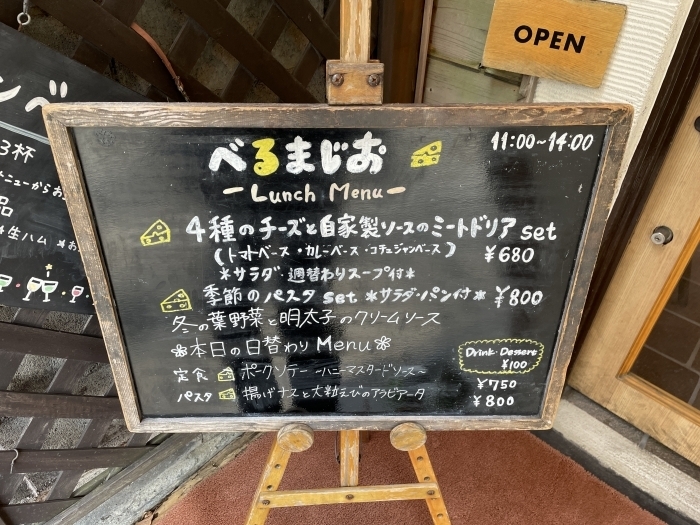 OPEN
ンベ
3杯
ニューからお
品
*生ハム *お
べるまじお
11:00~14:00
-Lunch Menu-
4種のチーズと自家製ソースのミートドリア set
(トマトベース・カレーベース・コチュジャンベース) ¥680
*サラダ・週替わりスープ付*
季節のパスタ set *サラダ・パン付* ¥800
冬の葉野菜と明太子のクリームソース
本日の日替わり Menu
Drink・Dessert
¥100
定食 ポークソテー ~ハニーマスタードソース~ ¥750
パスタ 揚げナスと大粒えびのアラビアータ ¥800